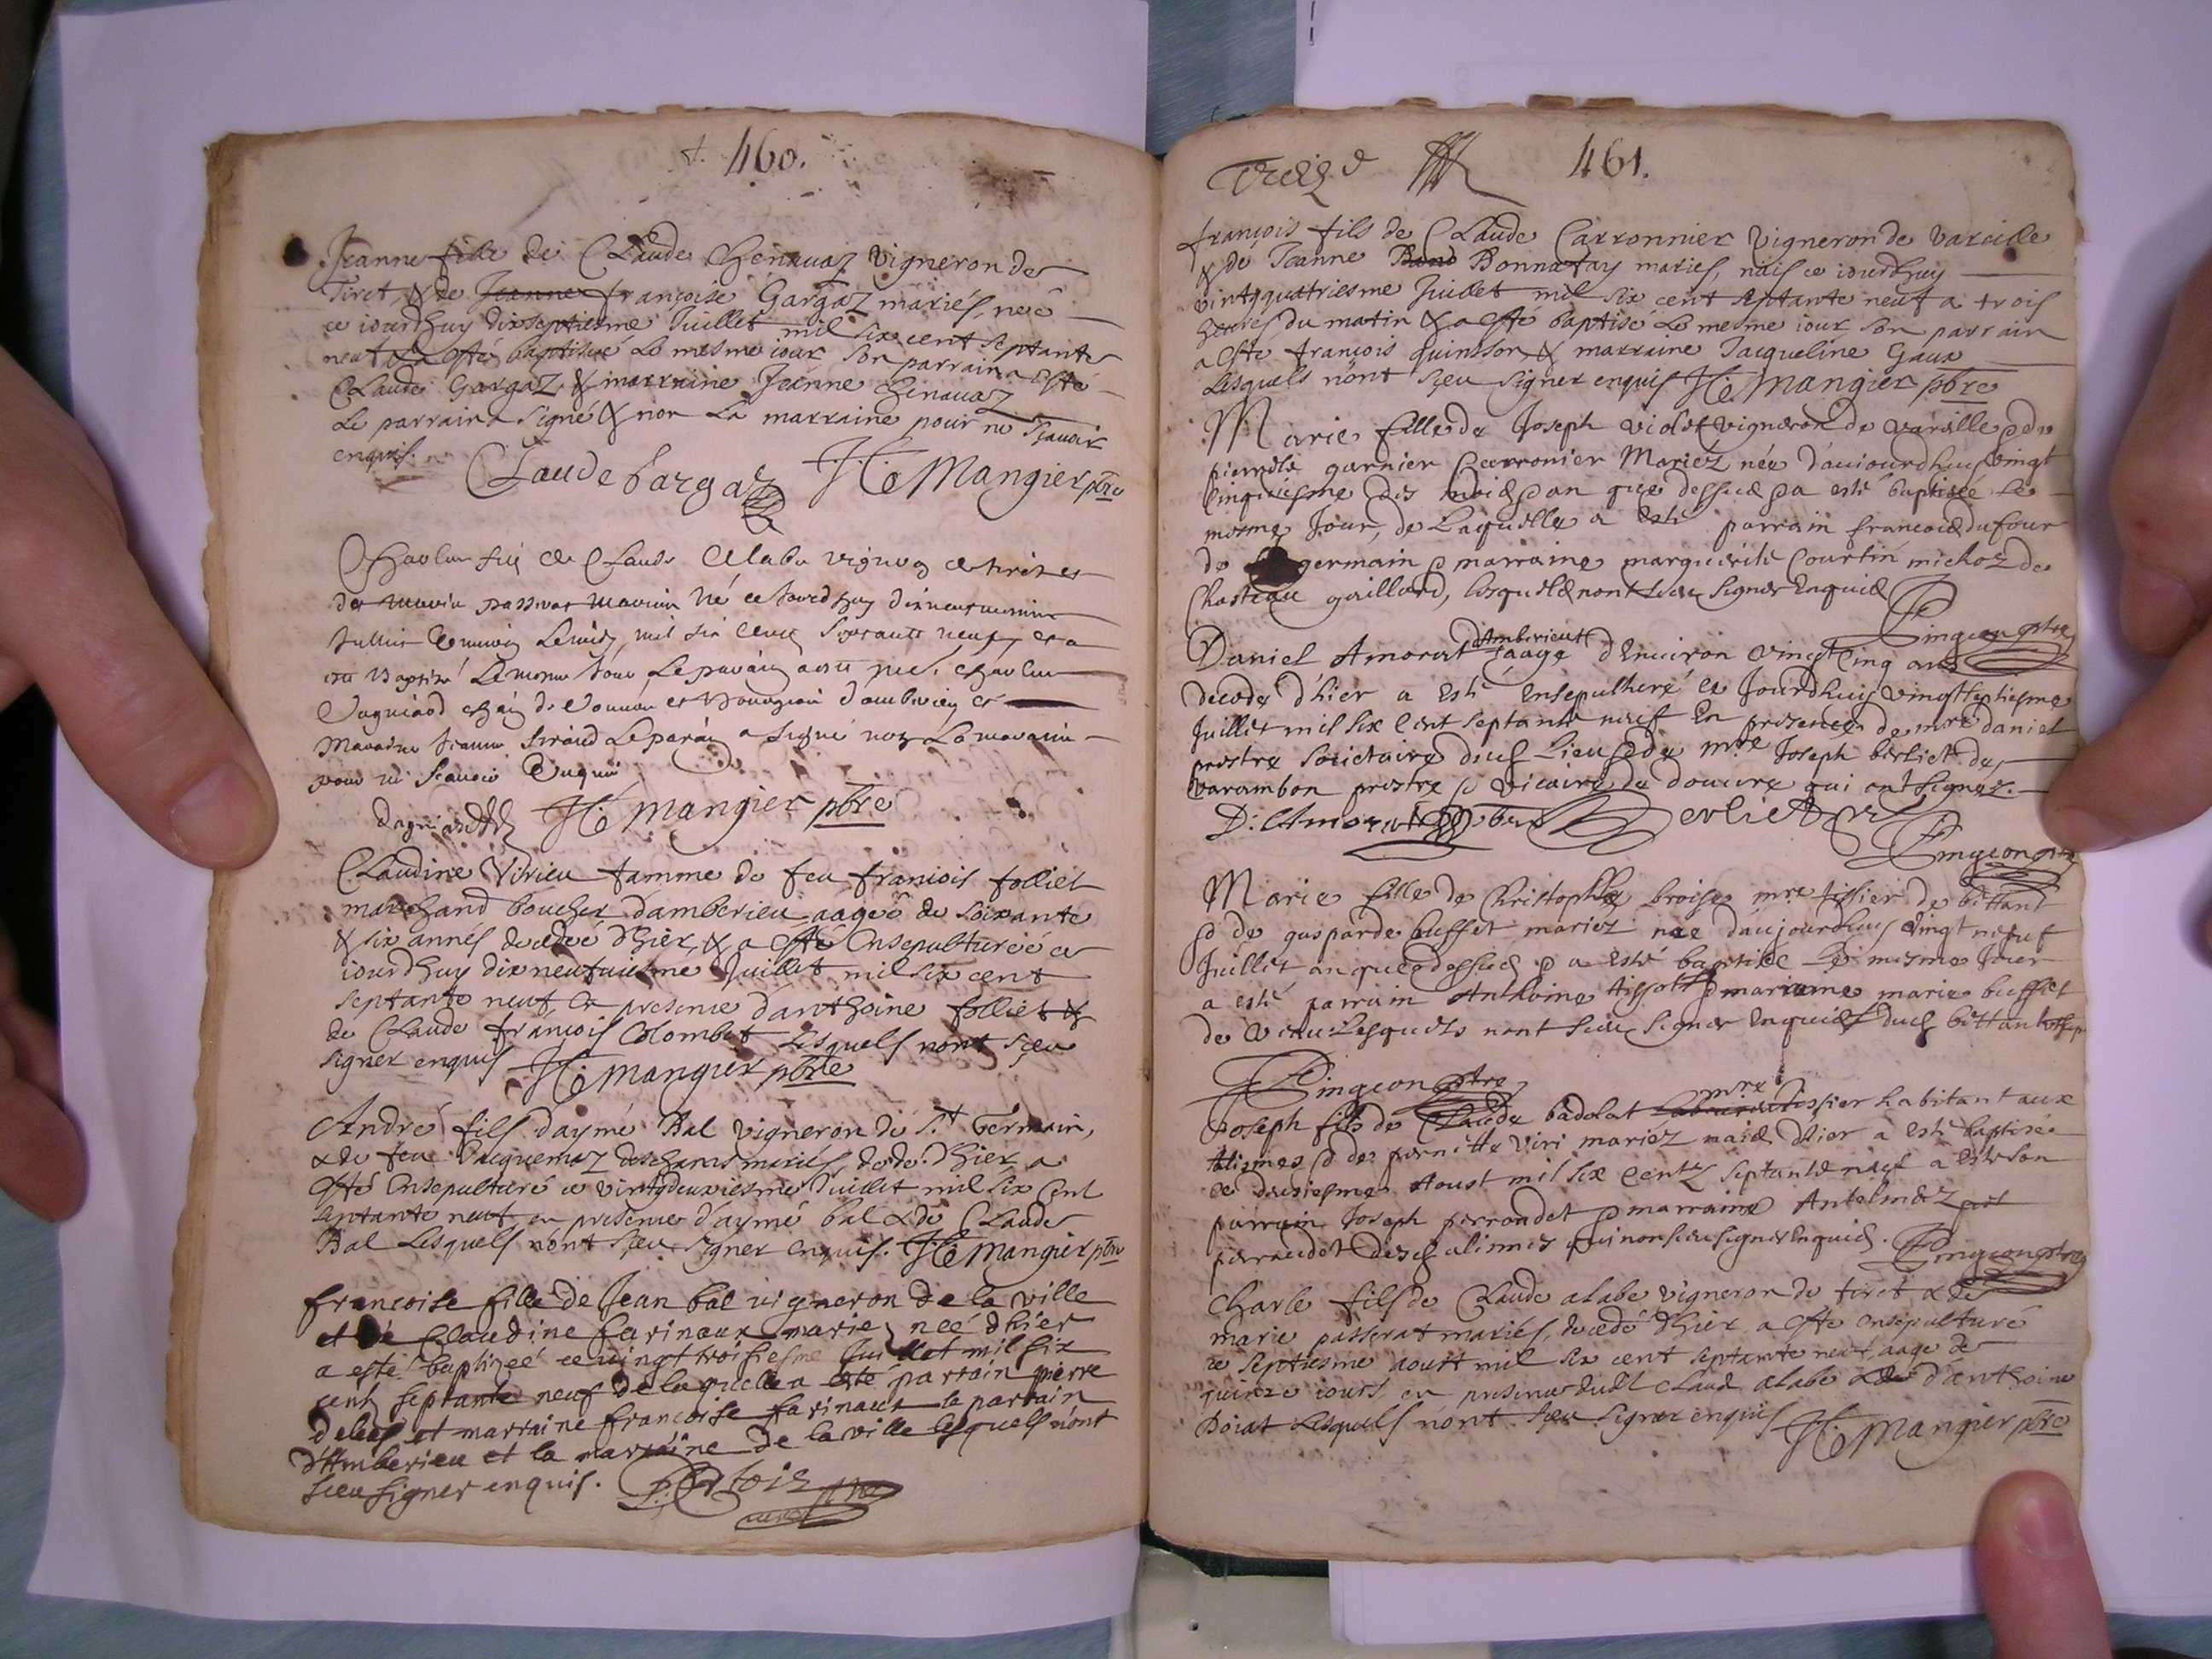 460.
Jeanne fille de Claude Chenavaz vigneron de
Tiret, & de Jeanne françoise Gargaz mariés, neé
ce iourdhuy dixseptiesme Juillet mil six cent septante
neuf & a esté baptiseé le mesme iour son parrain a esté
Claude Gargaz & marraine Jeanne Chenavaz
Le parrain a signé & non La marraine pour ne sçavoir
enquis.
Claude Gargaz H. Mangier pbre
Charles fils de Claude Alabe vigneron de tiret et
de Marie passerat mariés né ce jourdhuy dixneufviesme
Juillet mil six cent septante neuf et a
esté Baptisé Le mesme Jour Le parain a esté Charles
Dagniard
Marraine Jeanne Siraud Le parain a signé non La maraine
pour ne scavoir Enquis
H. Mangier pbre
Claudine Virieu famme de feu françois folliet
marchand boucher damberieu aageé de soixante
& six annés decedeé d'hier, & a esté ensepultureé ce
iourdhuy dixneufuiesme Juillet mil six cent
septante neuf en presence d'anthoine folliet &
de Claude françois Colombet Lesquels nont sçeu
signer enquis H. Mangier pbre
André fils d'aymé Bal vigneron de St Germain,
& de feu Jacquemaz deschams mariés, decedé d'hier a
esté ensepulturé ce vintgdeuxiesme Juillet mil six cent
septante neuf en presence d'aymé bal & de Claude
Bal Lesquels nont sçeu signer enquis. H. Mangier pbre
françoise fille de Jean bal vigneron de la ville
et de Claudine farinaux marie neé d'hier
a esté baptizeé ce vingt troisiesme Juillet mil six
cent septante neuf de laquelle a esté parrain pierre
deleaz et marraine francoise farinaux le parrain
d'Amberieu et la marraine de la ville lesquels n'ont
sceu signer enquis.
Treize 461.
françois fils de Claude Carronnier vigneron de vareille
& de Jeanne Band Bonnatay mariés, nais ce iourdhuy
vintgquatriesme Juillet mil six cent septante neuf a trois
heures du matin & a esté baptisé Le mesme iour son parrain
a esté françois quinsson & marraine Jacqueline Gaux
Lesquels n'ont sçeu signer enquis H. Mangier pbre
Marie fille de Joseph violet vigneron de vareille & de
pierrette garnier Carronier Mariez née d'auiourdhuy vingt
Cinquiesme des mois & an que dessus & a esté baptisée Le
mesme Jour, de Laquelle a esté parrain francois dufour
de germain & marraine marguerite Courtin michoz de
Chasteau gaillard, lesquels nont sceu signer Enquis
Pingeon ptre
Daniel Amorat d'Amberieut aagé d'Enuiron vingt Cinq ans
decedé d'hier a esté Ensepulturé ce Jourdhuy vingtseptiesme
Juillet mil six Cent septante neuf En presence de mre daniel
prestre societaire dud Lieu & de mre Joseph berliet de
varambon prestre & vicaire de douure qui ont signez.
D: Amorat Berliet
Pingeon ptre
Marie fille de Christophle broise mre tissier de bettant
& de gasparde buffet mariez née d'aujourdhuy vingt neufuf
Juillet an que dessus & a esté baptisée Le mesme Jour
a esté parrain Anthoine tissot & marraine marie buffet
de Lesquels nont sceu signer Enquis dud bettant
Pingeon ptre
Joseph fils de Claude badolat mre tissier habitant aux
alismes & de pernette viri mariez nais d'hier a esté baptisé
ce deusiesme Aoust mil six Centz septante neuf a esté son
parrain Joseph perroudet & marraine
perroudet desd alimes qui non sceu signer Enquis. Pingeon ptre
Charle fils de Claude alabe vigneron de tiret & de
marie passerat mariés, decedé d'hier a esté ensepulturé
ce septiesme aoust mil six cent septante neuf, aage de
quinze iours, en presence dudit Claud alabe & de d'anthoine
Doiat Lesquels n'ont sçeu signer enquis H. Mangier pbre